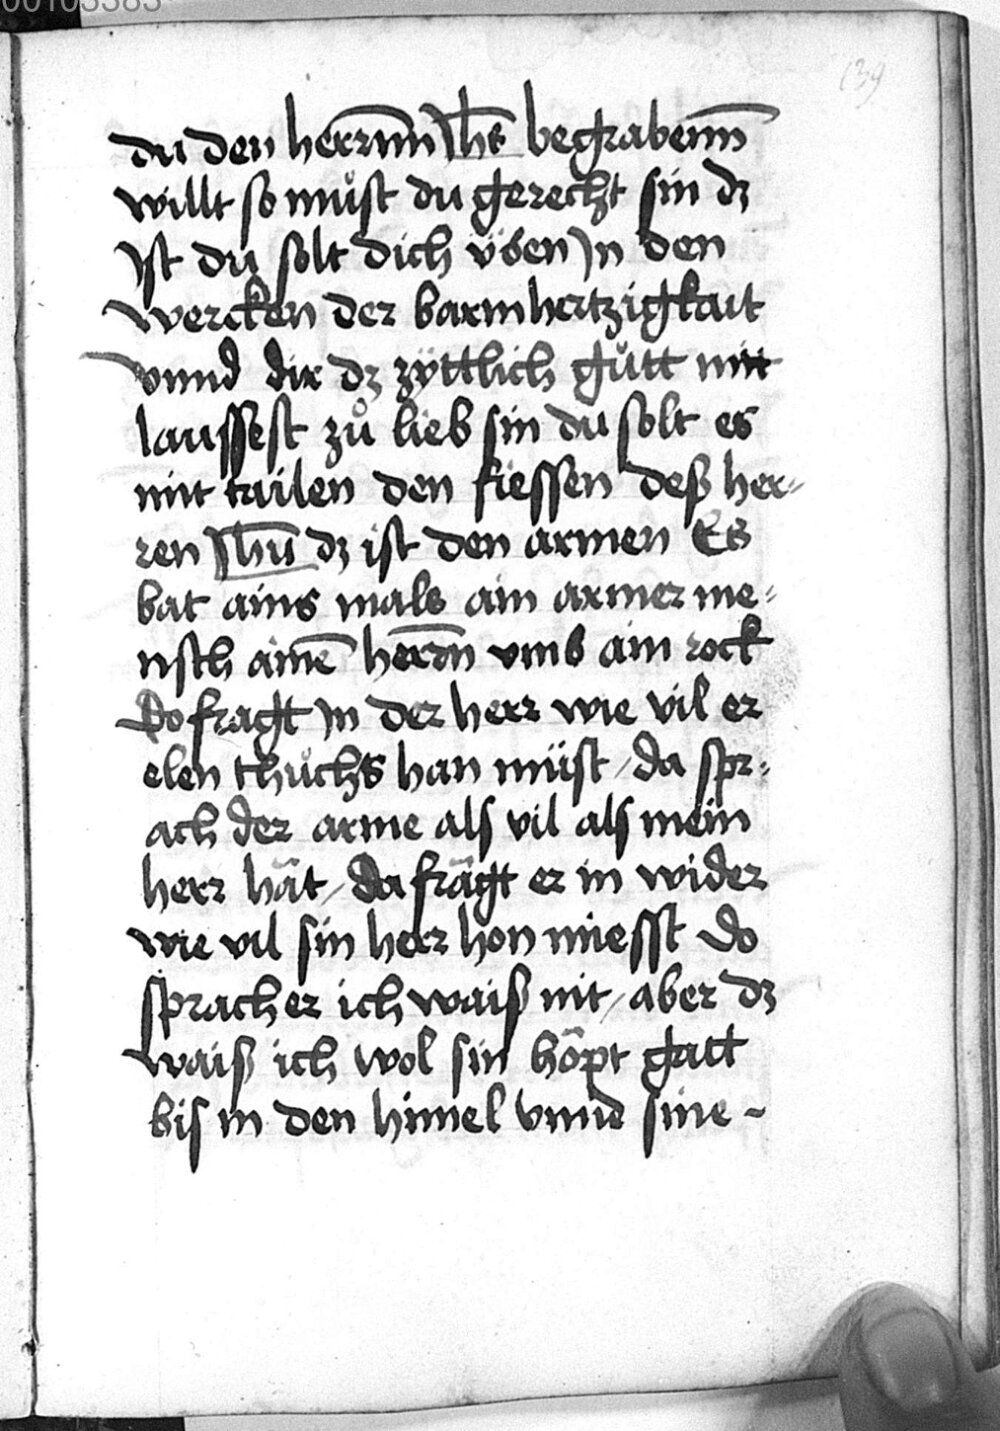 139
du den herrnn Jhs begrabenn
willt so můst du gerecht sin dz
Jst du solt dich ÿben Jn den
wercken der barmhertzigkait
vnnd dir dz zÿttlich gůtt nitt
laussest zů lieb sin du solt es
mit tailen den fiessen deß her-
ren Jhū dz ist den armen Es
bat ains mals ain armer me-
nsch ainē herrn vmb ain rock
Do fragt Jn der herr wie vil er
elen thůchs han müst / da spr-
ach der arme als vil als mein
herr hât / da frâgt er in wider
wie vil sin herr hon miesst do
sprach er ich waiß nit / aber dz
waiß ich wol sin hôpt gatt
bis in den himel vnnd sine -